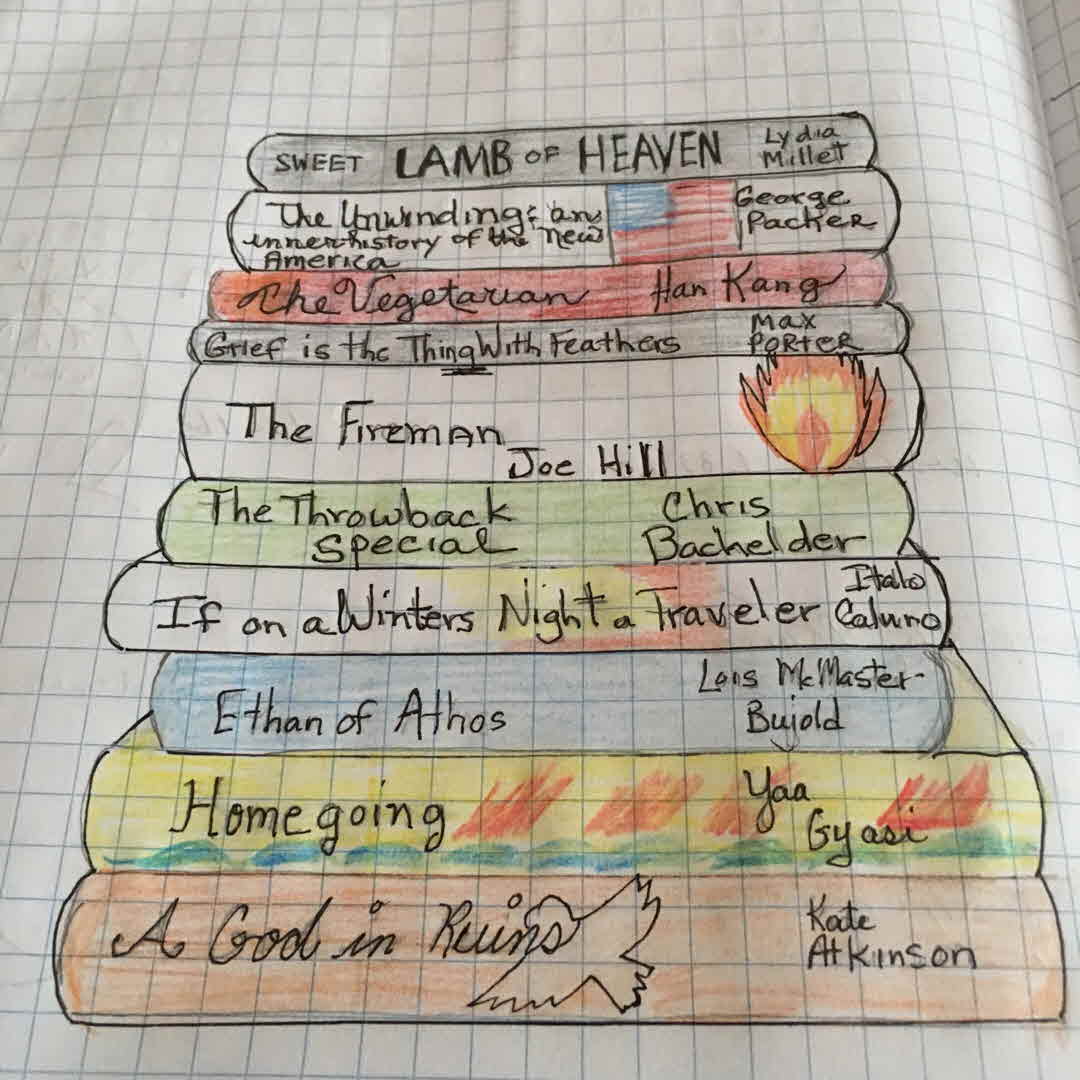 SWEET LAMB OF HEAVEN Lydia
Millet
The Unwinding: an
inner history of the new
America
George
Packer
The Vegetarian Han Kang
Grief is the Thing With Feathers Max
Porter
The Fireman
Joe Hill
The Throwback
Special
Chris
Bachelder
If on a Winters Night a Traveler Italo
Caluno
Ethan of Athos
Lois McMaster-
Bujold
Homegoing
Yaa
Gyasi
A God in Ruins
Kate
Atkinson